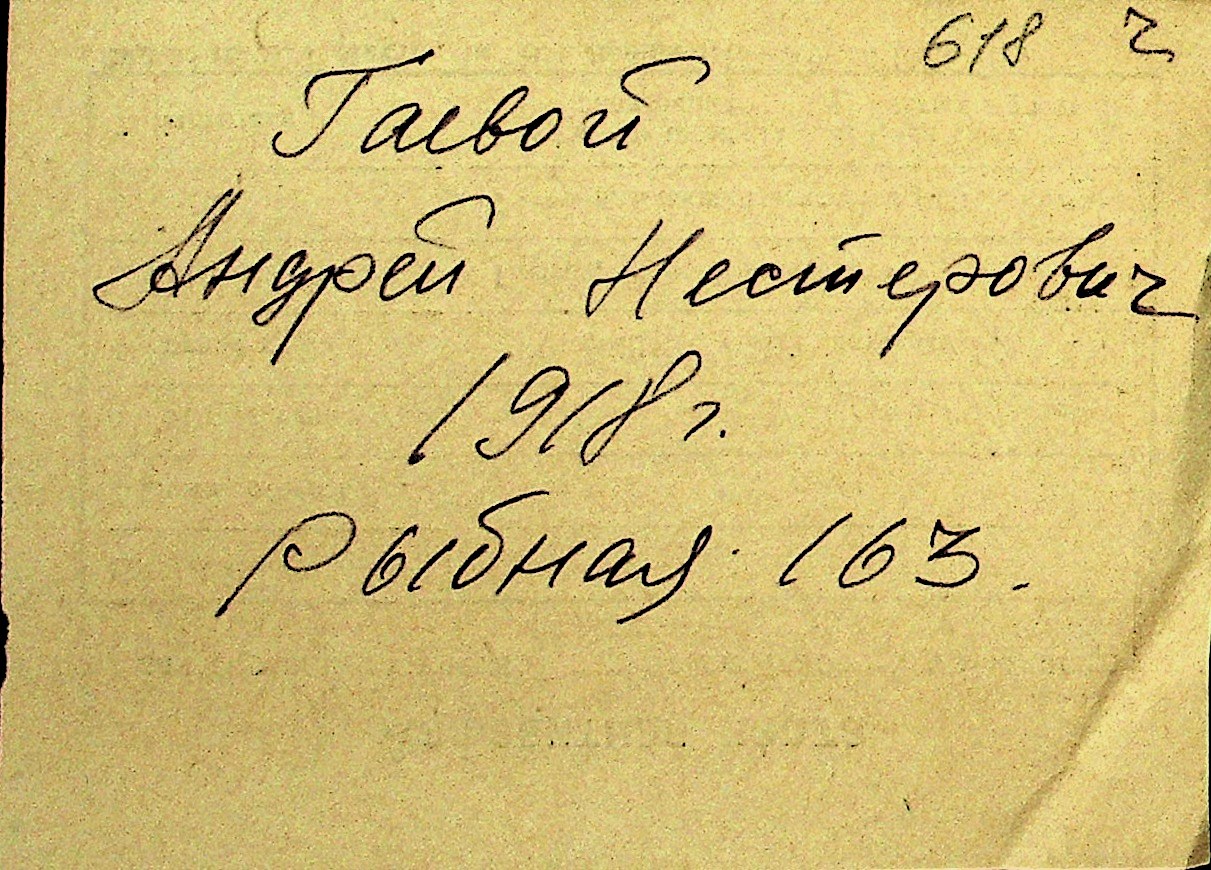 618 ч
Гаевой
Андрей Нестерович
1918 г.
Рыбная 163.